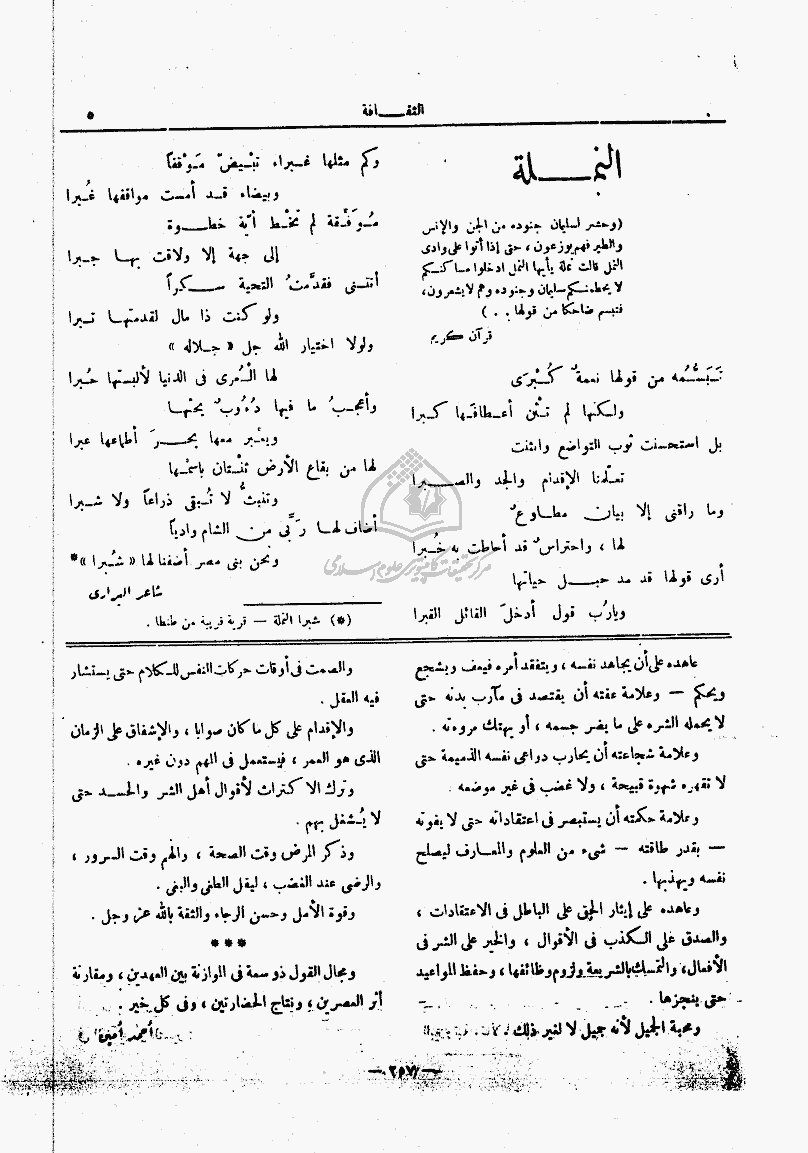 الثقافة
٥
النملة
(وحشر لسليمان جنوده من الجن والإنس
والطير فهم يوزعون ، حتى إذا أتوا على وادى
النمل قالت نملة يأيها النمل ادخلوا مساكنكم
لا يحطمنكم سليمان وجنوده وهم لا يشعرون ،
فتبسم ضاحكا من قولها . . )
قرآن كريم
تَبَسُّمه من قولها نعمةٌ كُبْرَى
ولكنها لم تثن أعطافها كبرا
بل استحسنت ثوب التواضع وانثنت
تعلّمنا الإقدام والجد والصبرا
وما راقنى إلا بيان مطاوعٌ
لها ، واحتراسٌ قد أحاطت به خُبرا
أرى قولها قد مد حبل حياتها
ويارُب قول أدخلَ القائل القبرا
وكم مثلها غبراء تبْيضّ مَوْقفاً
وبيضاء قد أمست مواقفها غُبرا
مُوَفَّقة لم تخْط أيّة خطوة
إلى جهة إلا ولاقت بها جبرا
أتتنى فقدَّمتُ التحية سكراً
ولو كنت ذا مال لقدمتها تبرا
ولولا اختيار الله جل « جلاله »
لها الْعُرى فى الدنيا لألبستها حُبرا
وأعجبُ ما فيها دُءُوبٌ يحثها
ويعْبر معها بحرَ أطماعها عبرا
لها من بقاع الأرض ثنتان باسمْها
وتنبثُّ لا تُبقى ذراعاً ولا شبرا
أضاف لها ربّى من الشام وادياً
ونحن بنى مصر أضفنا لها « شُبرا »*
شاعر البرارى
(*) شبرا النملة — قرية قريبة من طنطا .
عاهده على أن يجاهد نفسه ، ويتفقد أمره فيعف ويشجع
ويحكم — وعلامة عفته أن يقتصد فى مآرب بدنه حتى
لا يحمله الشره على ما يضر جسمه ، أو يهتك مروءته .
وعلامة شجاعته أن يحارب دواعى نفسه الذميمة حتى
لا تقهره شهوة قبيحة ، ولا غضب فى غير موضعه .
وعلامة حكمته أن يستبصر فى اعتقاداته حتى لا يفوته
— بقدر طاقته — شىء من العلوم والمعارف ليصلح
نفسه ويهذبها .
وعاهده على إيثار الحق على الباطل فى الاعتقادات ،
والصدق على الكذب فى الأقوال ، والخير على الشر فى
الأفعال، والتمسك بالشريعة ولزوم وظائفها ، وحفظ المواعيد
حتى ينجزها .
ومحبة الجميل لأنه جميل لا لغير ذلك
والصمت فى أوقات حركات النفس للكلام حتى يستشار
فيه العقل .
والإقدام على كل ما كان صوابا ، والإشفاق على الزمان
الذى هو العمر ، فيستعمل فى المهم دون غيره .
وترك الاكتراث لأقوال أهل الشر والحسد حتى
لا يُشغل بهم .
وذكر المرض وقت الصحة ، والهم وقت السرور ،
والرضى عند الغضب ، ليقل الطغى والبغى .
وقوة الأمل وحسن الرجاء والثقة بالله عز وجل .
***
ومجال القول ذو سعة فى الموازنة بين العهدين ، ومقارنة
أثر العصرين ، ونتاج الحضارتين ، وفى كل خير .
أحمد أمين
مركز تحقيقات كامپيوترى علوم اسلامى